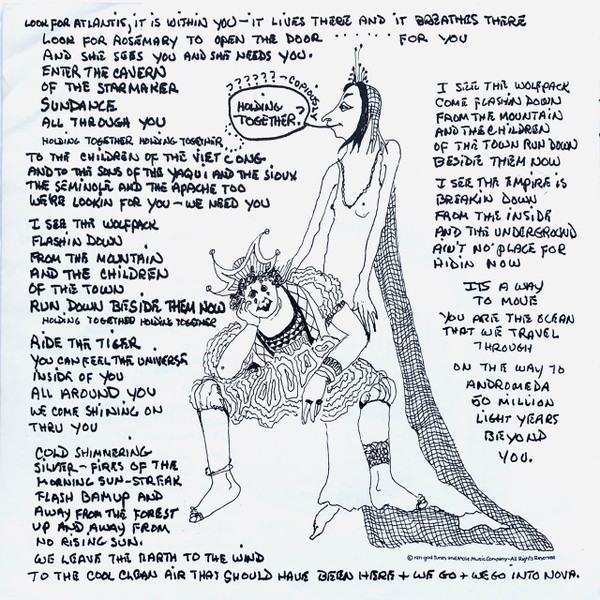 LOOK FOR ATLANTIS, IT IS WITHIN YOU — IT LIVES THERE AND IT BREATHES THERE
LOOK FOR ROSEMARY TO OPEN THE DOOR ...... FOR YOU
AND SHE SEES YOU AND SHE NEEDS YOU.
ENTER THE CAVERN
OF THE STARMAKER
SUNDANCE
ALL THROUGH YOU
HOLDING TOGETHER HOLDING TOGETHER
TO THE CHILDREN OF THE VIET CONG
AND TO THE SONS OF THE YAQUI AND THE SIOUX
THE SEMINOLE AND THE APACHE TOO
WE'RE LOOKIN FOR YOU — WE NEED YOU
I SEE THE WOLFPACK
FLASHIN DOWN
FROM THE MOUNTAIN
AND THE CHILDREN
OF THE TOWN
RUN DOWN BESIDE THEM NOW
HOLDING TOGETHER HOLDING TOGETHER
RIDE THE TIGER
YOU CAN FEEL THE UNIVERSE
INSIDE OF YOU
ALL AROUND YOU
WE COME SHINING ON
THRU YOU
COLD SHIMMERING
SILVER-FIRES OF THE
MORNING SUN-STREAK
FLASH BAMUP AND
AWAY FROM THE FOREST
UP AND AWAY FROM
NO RISING SUN.
WE LEAVE THE EARTH TO THE WIND
TO THE COOL CLEAN AIR THAT SHOULD HAVE BEEN HERE + WE GO + WE GO INTO NOVA.
??????-COPIOUSLY
HOLDING
TOGETHER?
I SEE THE WOLFPACK
COME FLASHIN DOWN
FROM THE MOUNTAIN
AND THE CHILDREN
OF THE TOWN RUN DOWN
BESIDE THEM NOW
I SEE THE EMPIRE IS
BREAKIN DOWN
FROM THE INSIDE
AND THE UNDERGROUND
AIN'T NO PLACE FOR
HIDIN NOW
ITS A WAY
TO MOVE
YOU ARE THE OCEAN
THAT WE TRAVEL
THROUGH
ON THE WAY TO
ANDROMEDA
60 MILLION
LIGHT YEARS
BEYOND
YOU.
© 1971 God Tunes and Mole Music Company - All Rights Reserved